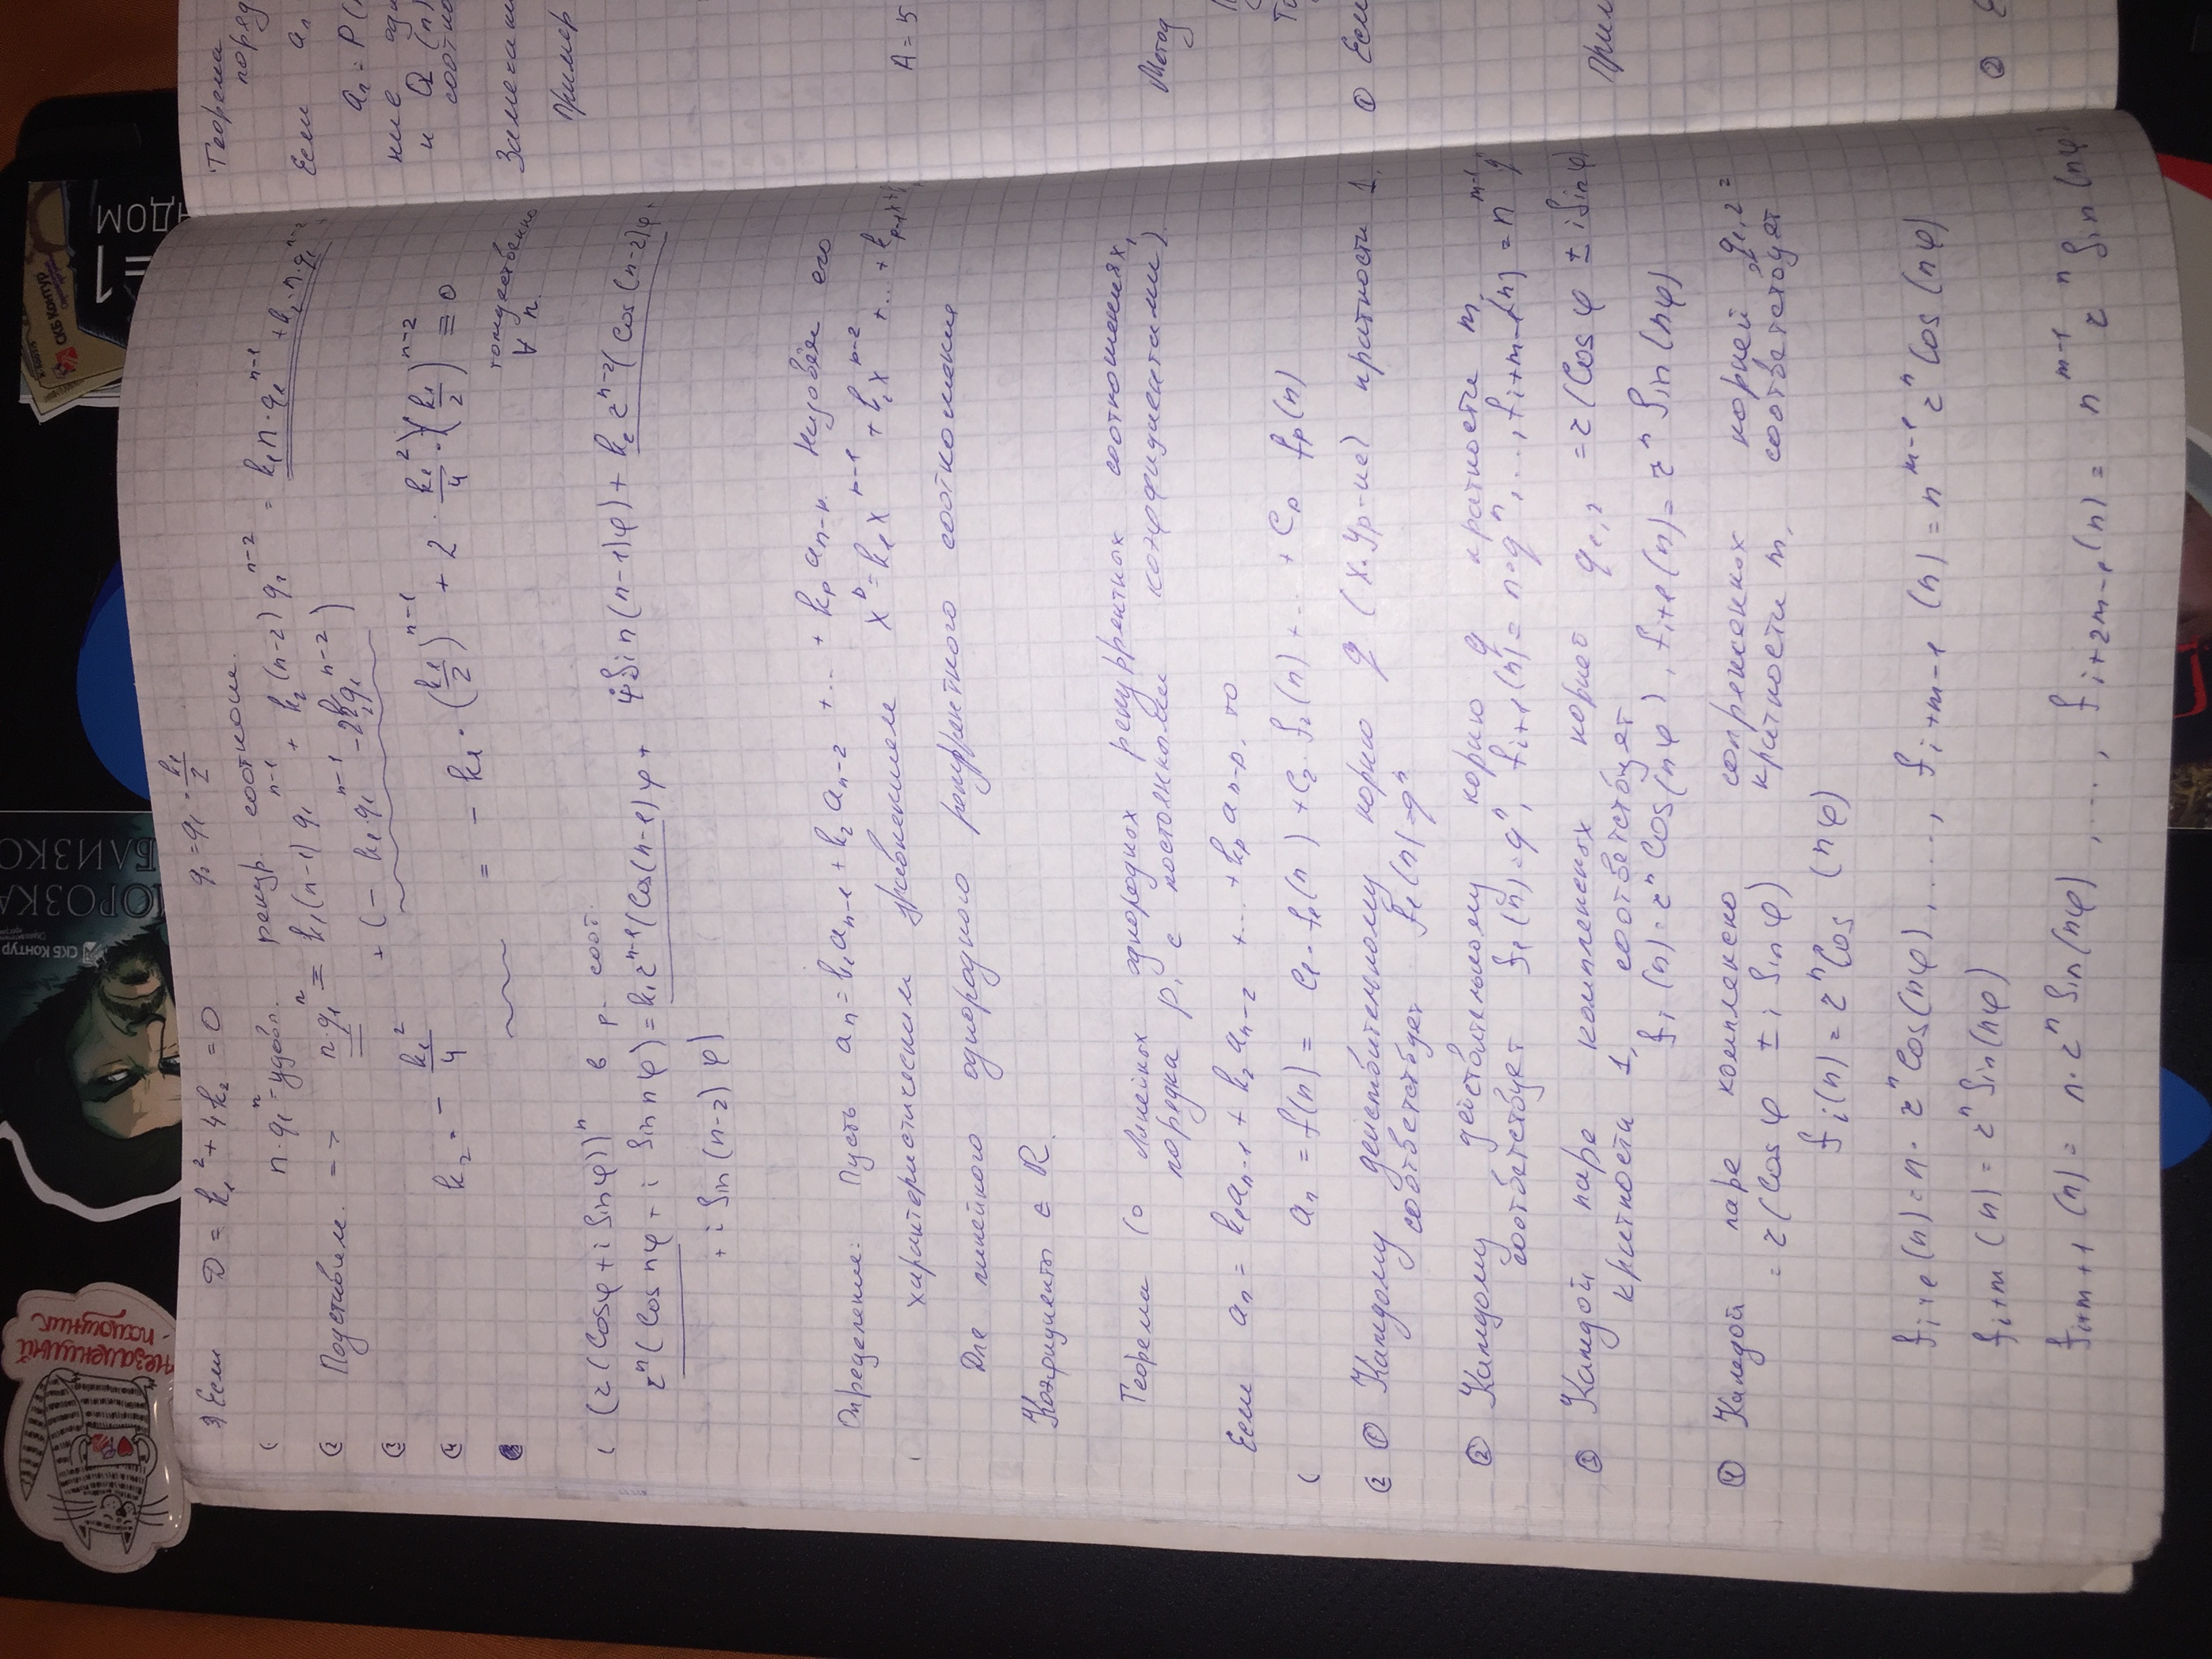 незаменимый
помощник
СКБ Контур
МОРОЗКА
БЛИЗКО
СКБ Контур
=1
3) Если D = k₁² + 4k₂ = 0 q₂ = q₁ = k₁/2
n·q₁ⁿ = удовл. рекур. соотнош.
Подставим. => n·q₁ⁿ ≡ k₁(n-1)q₁ⁿ⁻¹ + k₂(n-2)q₁ⁿ⁻² = k₁n·q₁ⁿ⁻¹ + k₂·n·q₁ⁿ⁻²
+ (- k₁·q₁ⁿ⁻¹ - 2k₂q₁ⁿ⁻²)
k₂ = - k₁²/4
= - k₁·(k₁/2)ⁿ⁻¹ + 2·k₁²/4·(k₁/2)ⁿ⁻² ≡ 0
тождественно
∀ n.
(r(Cosφ + i Sinφ))ⁿ в р. соот.
rⁿ(Cos nφ + i Sin nφ) = k₁rⁿ⁻¹(Cos(n-1)φ + i Sin(n-1)φ) + k₂rⁿ⁻²(Cos(n-2)φ +
+ i Sin(n-2)φ)
Определение: Пусть aₙ = k₁aₙ₋₁ + k₂aₙ₋₂ + ... + kₚaₙ₋ₚ. Назовём его
характеристическим уравнением xᵖ = k₁xᵖ⁻¹ + k₂xᵖ⁻² + ... + kₚ₋₁x + k
Для линейного однородного рекуррентного соотношение
Коэфициенты ∈ R.
Теорема (о линейных однородных рекуррентных соотношениях,
порядка p, с постоянными коэффициентами).
Если aₙ = k₁aₙ₋₁ + k₂aₙ₋₂ + ... + kₚaₙ₋ₚ, то
aₙ = f(n) = C₁·f₁(n) + C₂·f₂(n) + ... + Cₚ fₚ(n)
① Каждому действительному корню q (х. ур-ие) кратности 1,
соответствует f₁(n) = qⁿ
② Каждому действительному корню q кратности m,
соответствует f₁(n) = qⁿ, fᵢ₊₁(n) = n·qⁿ, ..., fᵢ₊ₘ₋₁(n) = nᵐ⁻¹q
③ Каждой паре комплексных корней q₁,₂ = r(Cos φ ± i Sin φ)
кратности 1, соответствует
fᵢ(n) = rⁿ Cos(nφ), fᵢ₊₁(n) = rⁿ Sin(nφ)
④ Каждой паре комплексно сопряженных корней q₁,₂ =
= r(Cos φ ± i Sin φ) кратности m, соответствует
fᵢ(n) = rⁿCos (nφ)
fᵢ₊₁(n) = n·rⁿCos(nφ), ...., fᵢ₊ₘ₋₁(n) = nᵐ⁻¹rⁿCos(nφ)
fᵢ₊ₘ(n) = rⁿ Sin(nφ)
fᵢ₊ₘ₊₁(n) = n·rⁿ Sin(nφ), ...., fᵢ₊₂ₘ₋₁(n) = nᵐ⁻¹rⁿ Sin(nφ)
Теорема
поряд
Если aₙ
aₙ = P(
ние одн
и Q(n)
соотно
Замечани
Пример
A = 5
Метод
① Если
Прим
②